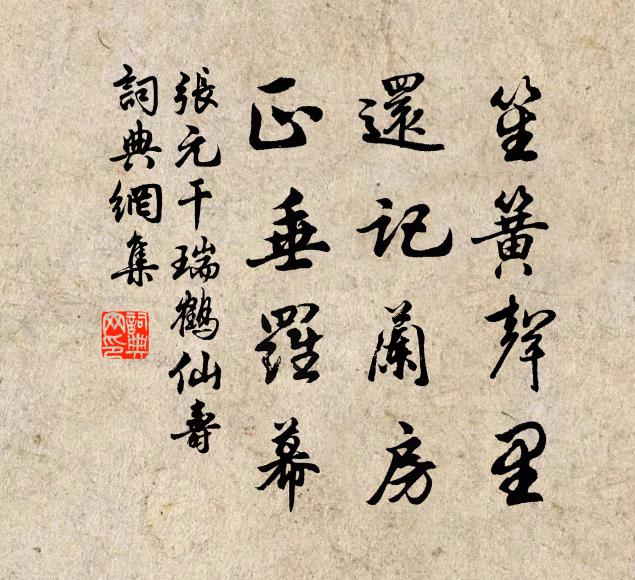 笙簧聲里
還記蘭房
正垂羅幕
張元干瑞鶴仙壽
詞典網集
詞典網印